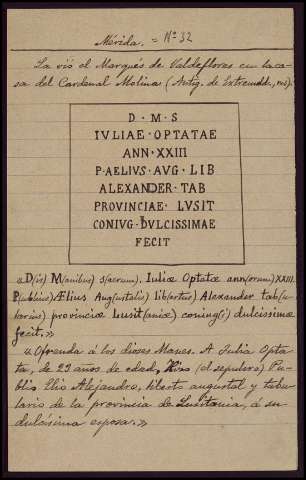 Mérida. = Nº 32
La vió el Marqués de Valdeflores en la ca-
sa del Cardenal Molina (Antig. de Extremdd., ms).
D · M · S
IVLIAE · OPTATAE
ANN · XXIII
P·AELIVS · AVG · LIB
ALEXANDER · TAB
PROVINCIAE · LVSIT
CONIVG · DVLCISSIMAE
FECIT
«D(is) M(anibus) s(acrum). Iuliæ Optatæ ann(orum) XXIII.
P(ublius) Ælius Aug(ustalis) lib(ertus) Alexander tab(u-
larius) provinciæ Lusit(aniæ) coniug(i) dulcissimæ
fecit.»
«Ofrenda á los dioses Manes. A Julia Opta-
ta, de 23 años de edad, hizo (el sepulcro) Pu-
blio Elio Alejandro, liberto augustal y tabu-
lario de la provincia de Lusitania, á su
dulcísima esposa.»